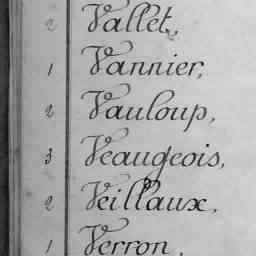 2 Vallet,
1 Vannier,
2 Vauloup,
3 Veaugeois,
2 Veillaux,
1 Verron,